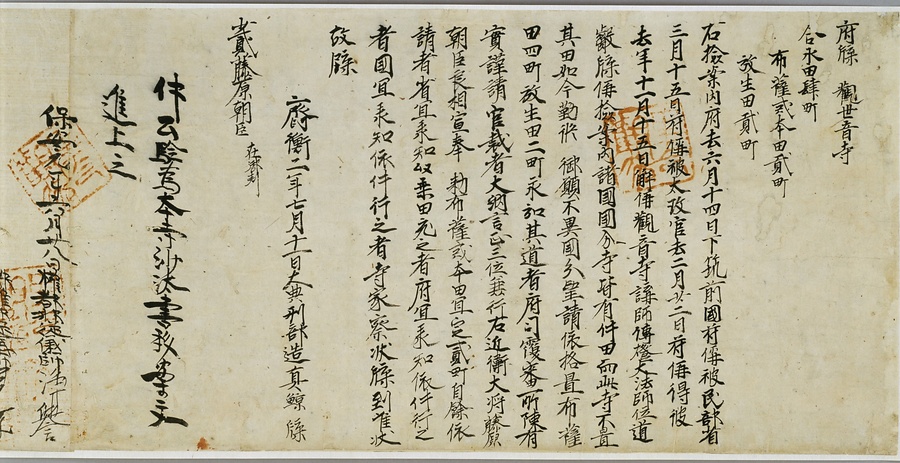 府牒 觀世音寺
合永田肆町
布薩戒本田貳町
放生田貳町
右撿案内府去六月十四日下筑前國符偁被民部省
三月十五日符偁被太政官去二月廿二日符偁得彼
去年十一月十五日解偁觀音寺講師傳燈大法師位道
牒偁撿案内諸國國分寺皆有件田而此寺不置
其田如今勤於御願不異國分望請依格置布薩
田四町放生田二町永和其道者府司覆審所陳有
實謹請官裁者大納言正三位兼行右近衛大將藤原
朝臣良相宣奉勅布薩戒本田宜定貳町自餘依
請者省宜承知以乘田充之者府宜承知依件行之
者國宜承知依件行之者寺家察状牒到准状
故牒
齊衡二年七月十一日大典刑部造真鯨牒
少貳藤原朝臣在
件公驗為本寺沙汰書
進上之
保安元年六月廿八日